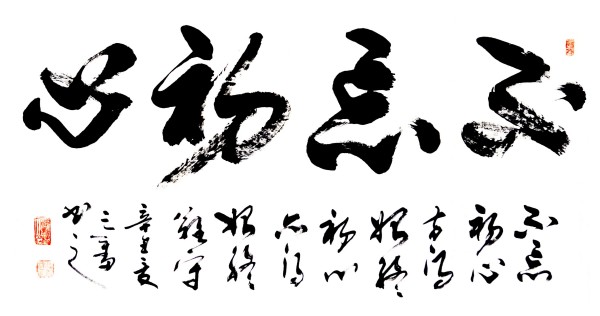 不忘初心
不忘
初心
方得
始終
初心
易得
始終
難守
辛丑夏
三
书之